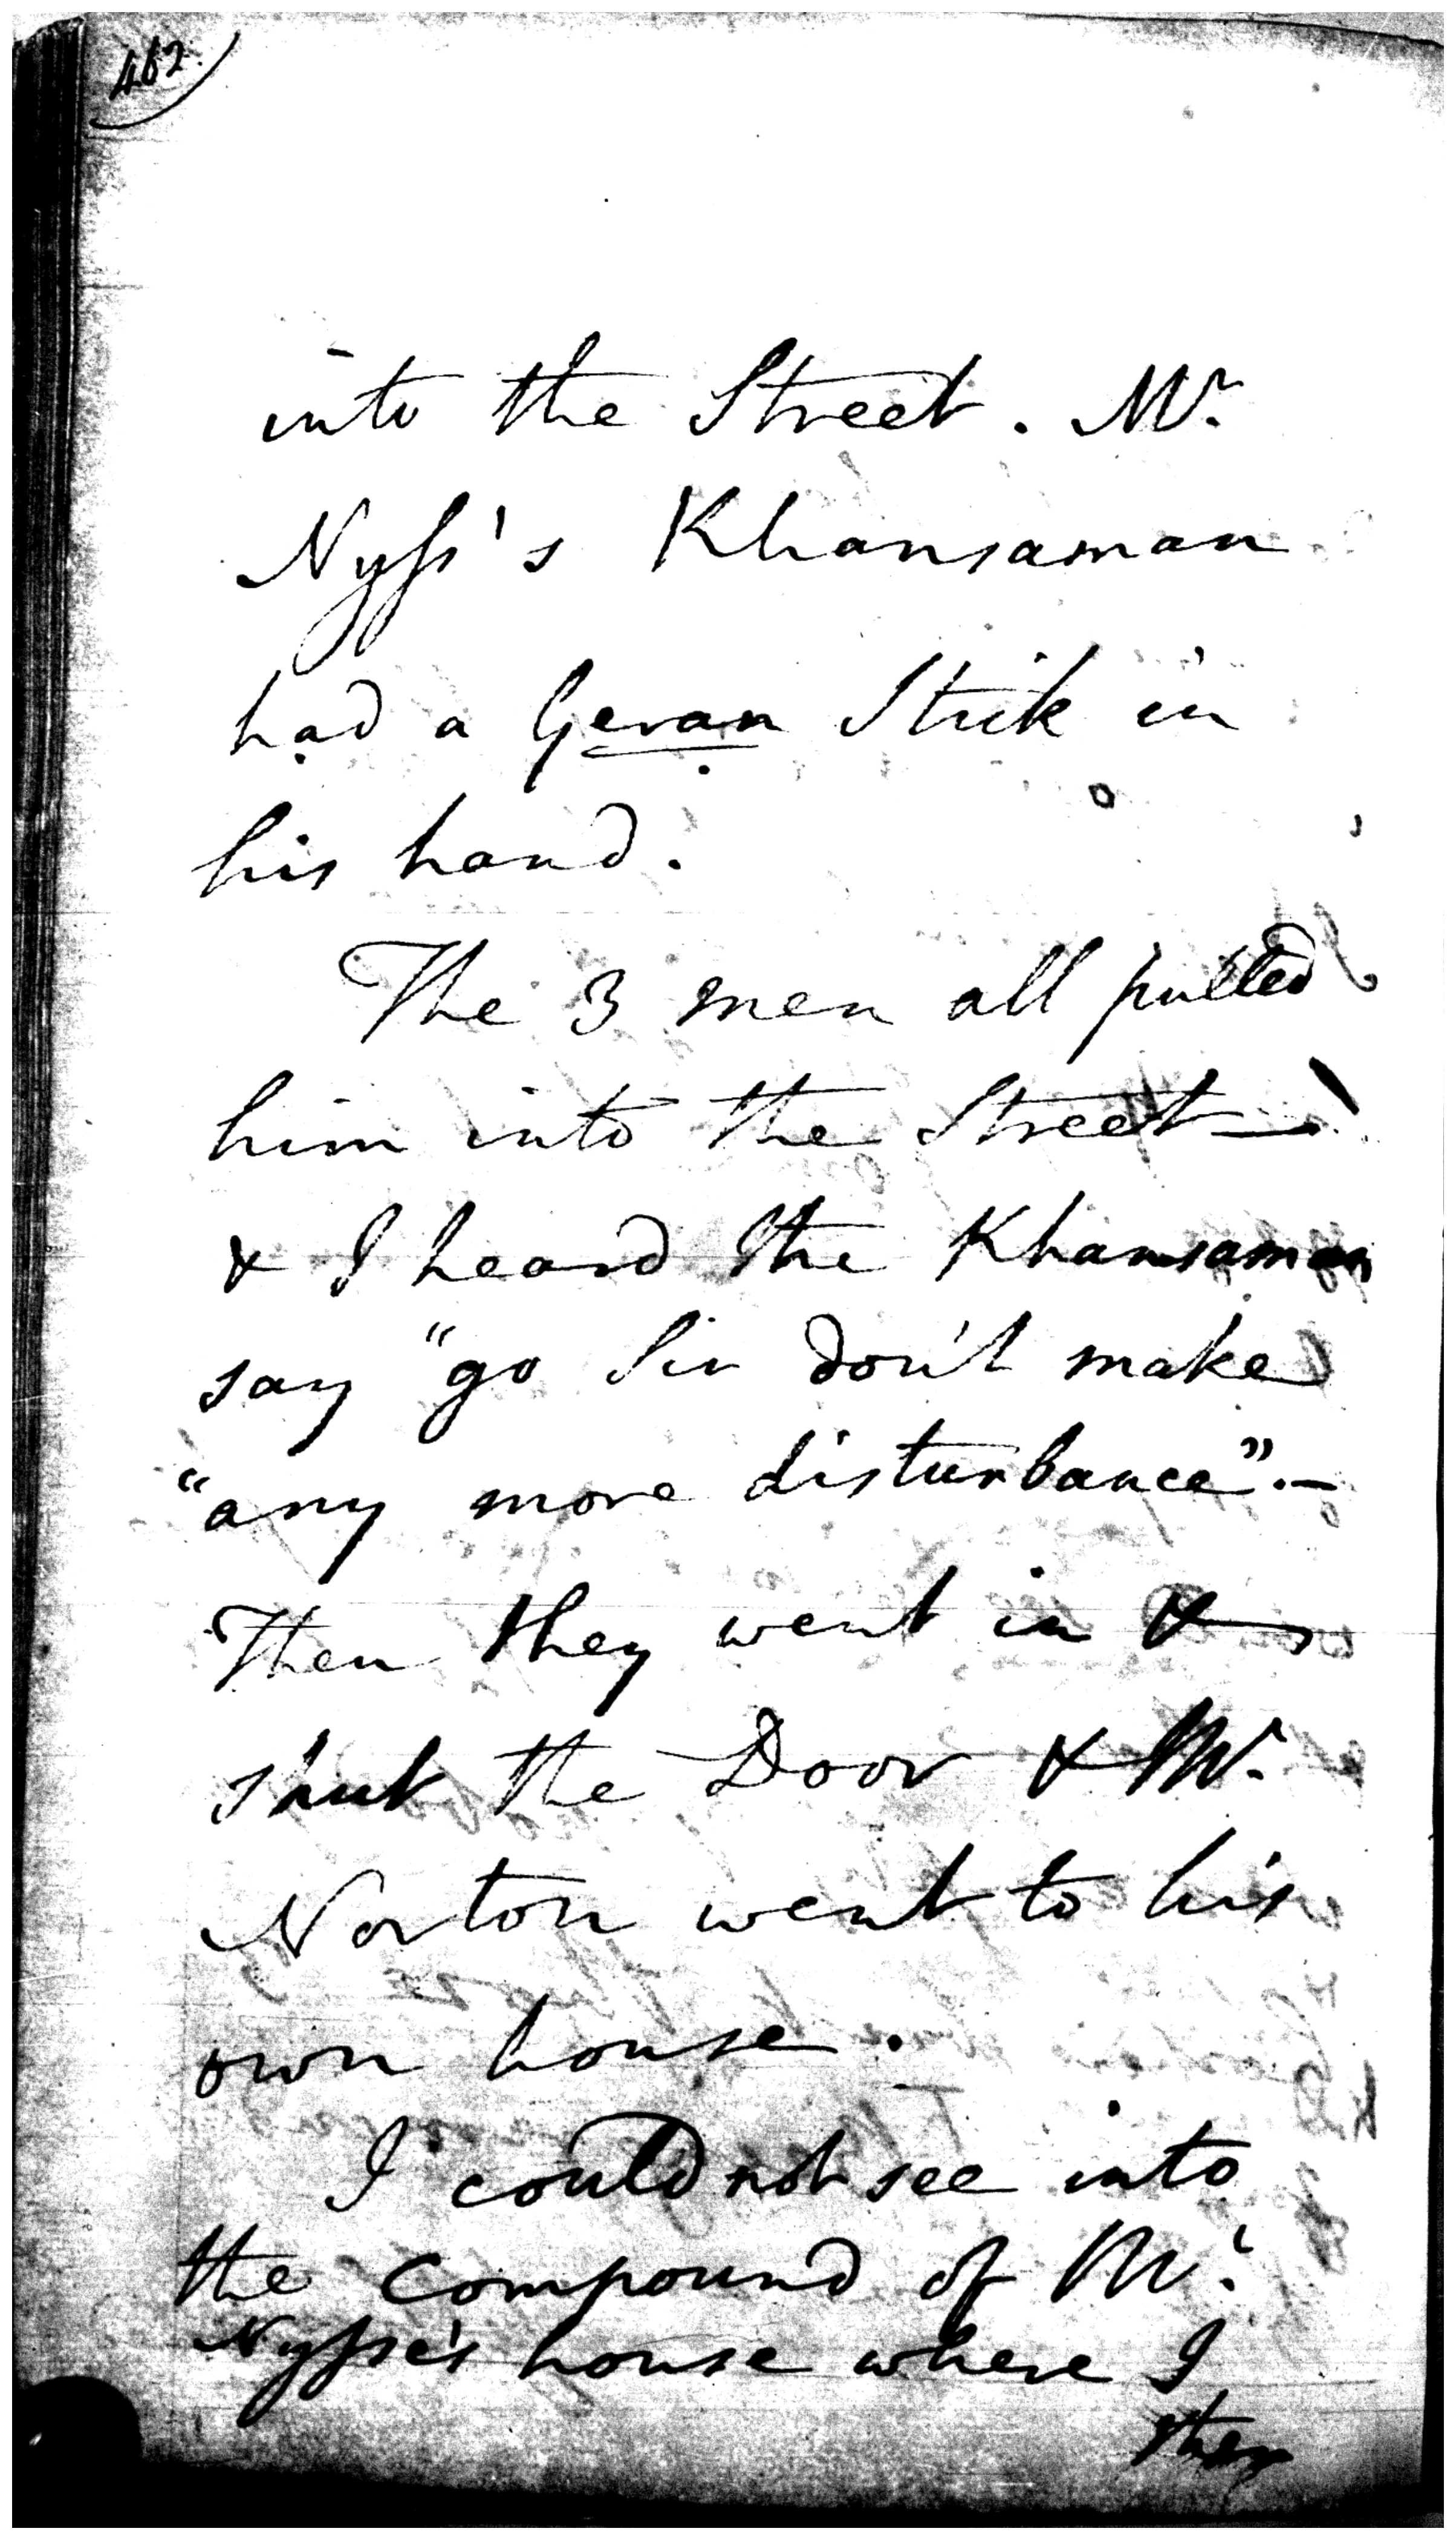 462.
into the Street. Mr.
Nyss's Khansaman
had a Geran Stick in
his hand.
The 3 men all pulled
him into the Street—
& I heard the Khansaman
say "go Sir don't make
"any more disturbance".—
Then they went in &
shut the Door & Mr.
Norton went to his
own house.
I could not see into
the compound of Mr.
Nysse's house where I
then